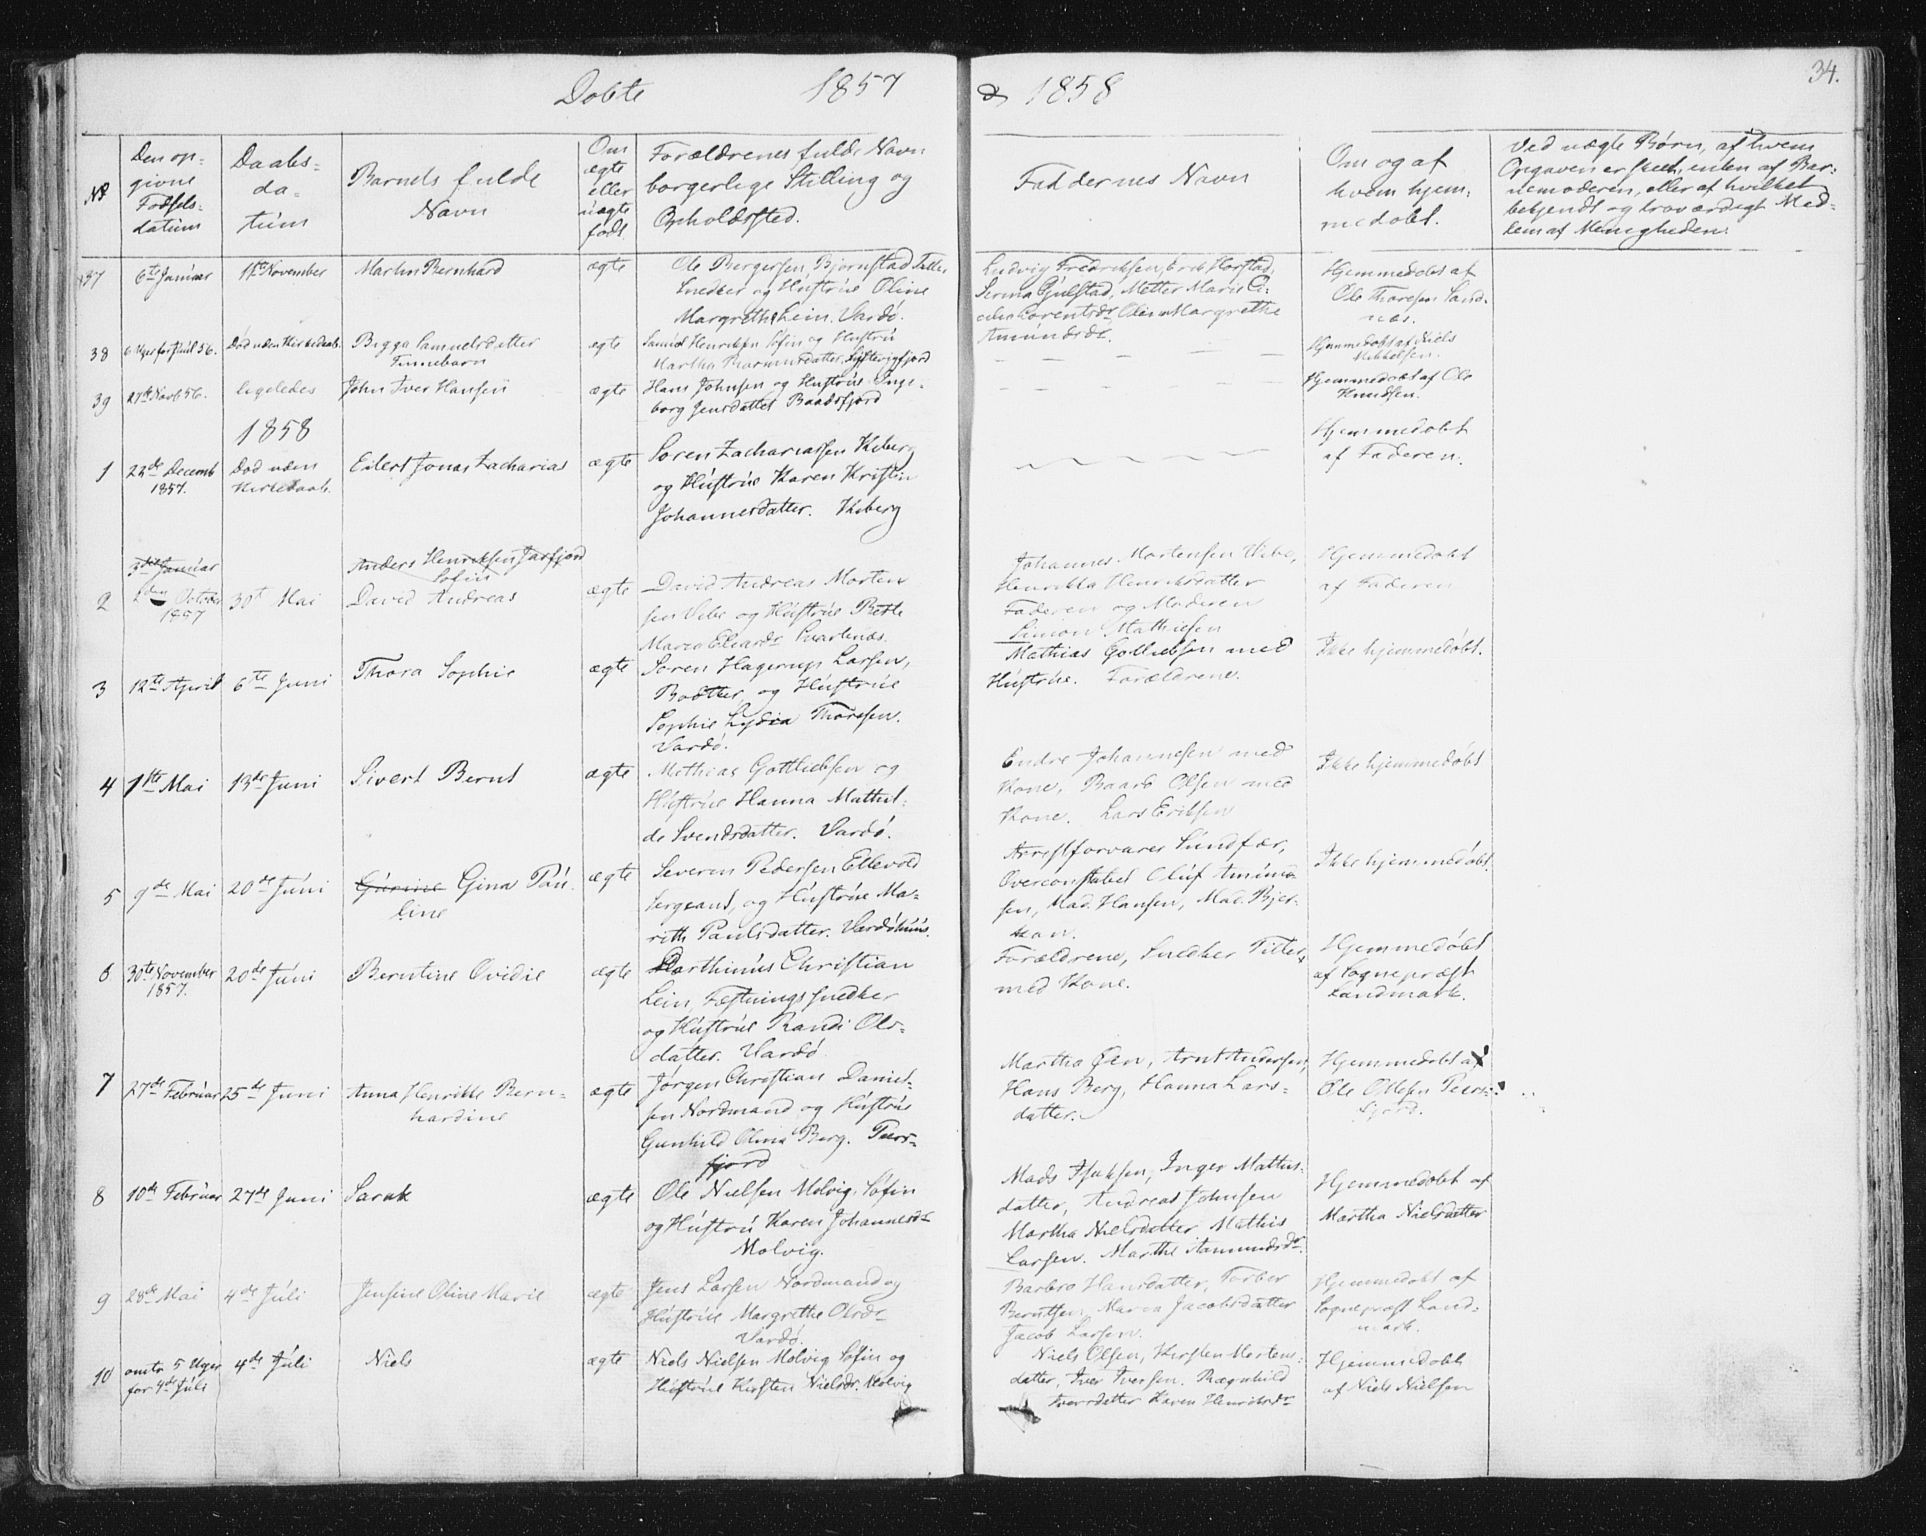 Døbte 1857
& 1858
34.
No
Den op-
givne
Fødsels-
datum
Daabs-
da-
tum
Barnets fulde
Navn
Om
ægte
eller
uægte
født
Forældrenes fulde Navn
borgerlige Stilling og
Opholdssted.
Faddernes Navn
Om og af
hvem hjem-
medøbt.
Ved uægte Børn, af hvem
Opgaven er skeet, enten af Bar-
nemoderen, eller af hvilket
bekjendt og troværdigt Med-
lem af Menigheden.
37
6te Januar
November
Martin Bernhard
ægte
Ole Bergersen Bjørnstad
Snedker og Hustrue Oline
Margrethe Lein. Vardø.
Ludvig Fredriksen, Erik Horstad,
Serina Gjulstad, Metter Marie
Lorentsdr Olina Margrethe
Amundsdr.
Hjemmedøbt af
Ole Thoresen Sand-
næs.
38
6 Uger før Juul 56.
Død uden Kirkedaab.
Begga Samuelsdatter
Finnebarn
ægte
Samuel Henriksen Søfin og Hustru
Martha Rasmusdatter,
Hjemmedøbt af Niels
Mikkelsen.
39
27de Novb 56.
ligeledes
John Iver Hansen
ægte
Hans Johnsen og Hustrue Inge-
borg Jensdatter Baadsfjord
Hjemmedøbt af Ole
Knudsen.
1858
1
22de Decemb
1857.
Død uden
Kirkedaab.
Eilert Jonas Zacharias
ægte
Søren Zachariassen Kiberg
og Hustrue Karen Kristin
Johannesdatter. Kiberg
Hjemmedøbt
af Faderen.
Januar
Anders Henriksen Jarfjord
Søfin
2
October
1857
30t Mai
David Andreas
ægte
David Andreas Morten
sen Vibe og Hustrue Berte
Marea Elvardr Svartnæs.
Johannes Mortensen Vibe,
Henrikka Henriksdatter
Faderen og Moderen
Simon Mathiesen
Hjemmedøbt
af Faderen
3
12te April
6te Juni
Thora Sophie
ægte
Søren Hagerup Larsen,
Bødtker og Hustrue
Sophie Lydia Thoresen.
Vardø.
Mathias Gotliebsen med
Hustrue. Forældrene.
Ikke hjemmedøbt.
4
1ste Mai
13de Juni
Sivert Bernt
ægte
Mathias Gottliebsen og
Hustrue Hanna Mathil-
de Svendsdatter. Vardø.
Endre Johannesen med
Kone, Baard Olsen med
Kone. Lars Eriksen
Ikke hjemmedøbt
5
9de Mai
20de Juni
Gurine Gina Pau-
line
ægte
Severin Pedersen Ellevold
Sergeant, og Hustrue Ma-
rith Paulsdatter. Vardøhuus.
Arrestforvarer Sundfær,
Overconstabel Oluf Amund-
sen, Mad. Hansen, Mad. Bjer-
kan.
Ikke hjemmedøbt.
6
30te November
1857.
20de Juni
Berntine Ovidie
ægte
Darthinus Christian
Lein, Fæstningssnedker
og Hustrue Randi Ols-
datter. Vardø
Forældrene, Snedker Titter
med Kone.
Hjemmedøbt
af Sognepræst
Landmark.
7
27de Februar
25de Juni
Anna Henrikke Bern-
hardine
ægte
Jørgen Christian Daniel-
sen Nordmand og Hustrue
Gunhild Olina Berg. Peers-
fjord
Martha Øen, Arnt Andersen,
Hans Berg, Hanna Lars-
datter.
Hjemmedøbt af
Ole Ollesen Peers-
fjord.
8
10de Februar
27de Juni
Sarak
ægte
Ole Nielsen Molvig, Søfin
og Hustru Karen Johannesdr
Molvig.
Mads Isaksen, Inger Mathis-
datter, Andreas Johnsen
Martha Nielsdatter Mathis
Larsen. Marthe Aamundsdr
Hjemmedøbt af
Martha Nielsdatter
9
28de Mai
4de Juli
Jensine Oline Marie
ægte
Jens Larsen Nordmand og
Hustrue Margrethe Olsdr
Vardø.
Barbro Hansdatter, Torber
Berntsen, Marea Jacobsdatter
Jacob Larsen.
Hjemmedøbt af
Sognepræst Land-
mark.
10
omtr 5 Uger
før 4de Juli
4de Juli
Niels
ægte
Niels Nielsen Molvig Søfin og
Hustrue Kirsten Nielsdr. Molvig
Niels Olsen, Kirsten Mortens-
datter, Iver Iversen. Ragnhild
Iversdatter Karen Henriksdr
Hjemmedøbt
af Niels Nielsen